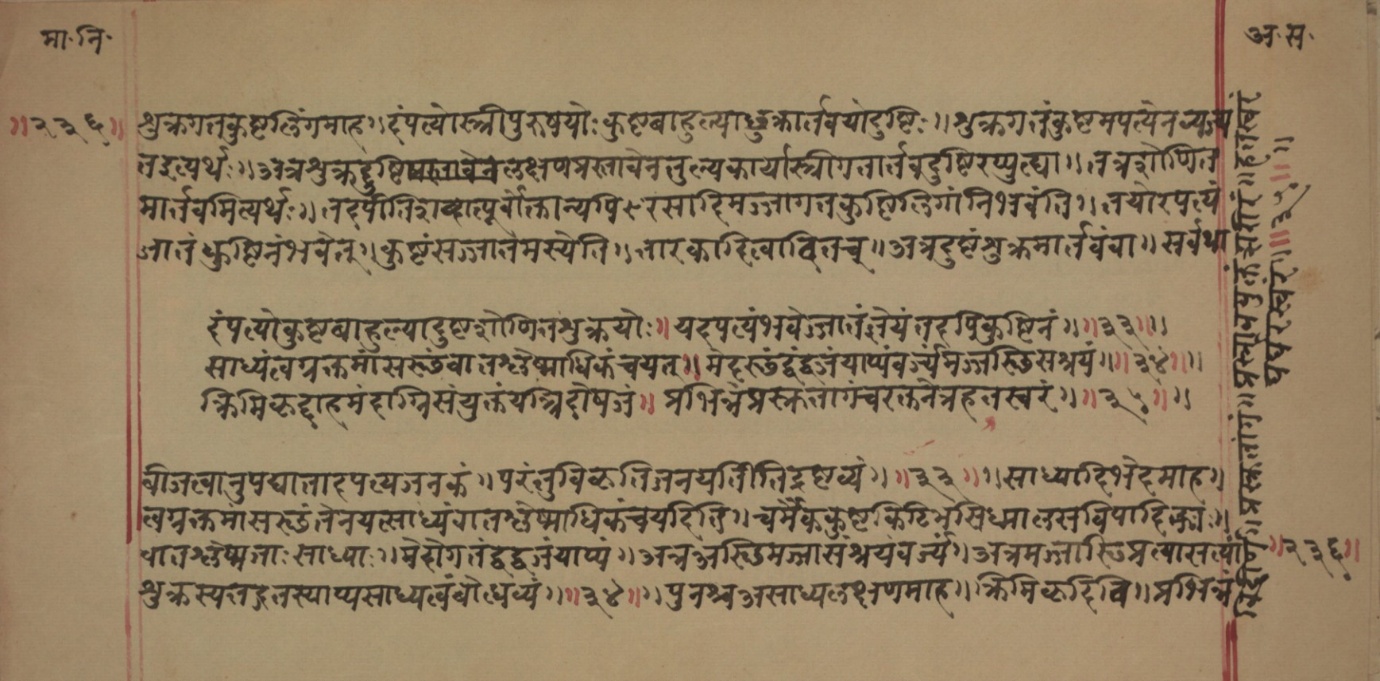 मा॰ नि॰
अ॰ स॰
॥२३६॥
शुक्रगतकुष्टलिंगमाह॥दंपत्योस्त्रीपुरुषयोः कुष्टबाहुल्याछुक्रार्तवयोदुष्टिः॥शुक्रगतंकुष्टमपत्येनव्यज्य
तइत्यर्थः॥अत्रशुक्रदुष्टि लक्षणप्रस्तावेनतुल्यकार्यास्त्रीगतार्तवदुष्टिरप्युत्द्या॥तत्रशोणित
मार्तवमित्यर्थः॥तदपीतिशब्दात्पूर्वोक्तान्यपि रसादिमज्जागतकुष्टलिंगांनिभवंति॥तयोरपत्यं
जातंकुष्टिनंभवेत्॥कुष्टंसज्जातमस्येति॥तारकादित्वादितच्॥अत्रदुष्टंशुक्रमार्तवंवा॥सर्वथा
दंपत्योकुष्टबाहुल्यादुष्टशोणितशुक्रयोः॥यदपत्यंभवेज्जातंज्ञेयंतदपिकुष्टिनं॥॥३३॥॥
साध्यंत्वग्रक्तमांसस्छंवातश्लेष्माधिकंचयत्॥मेदस्छंद्वंद्वजंयाप्यंवर्ज्यमज्जास्छिसंश्रयं॥॥३४॥॥
क्रिमिकृद्दाहमंदाग्निसंयुक्तंयत्रिदोषजं॥प्रभिन्नंप्रस्क्रतागंचरक्तनेत्रहतस्वरं॥॥३५॥॥
बीजत्वानुपघातादपत्यजनकं॥परंतुविकृतिजनयतीतिद्रष्टव्यं॥॥३३॥॥साध्यादिभेदमाह॥
त्वग्रक्तमांसस्छंतेनयत्साध्यंवातश्लेष्माधिकंचयदिति॥चर्मैककुष्टकिटिभसिध्मालसविपादिकाः॥
वातश्लेष्मजाःसाध्याः॥मेदोगतंद्वंद्वजंयाप्यं॥अन्नअस्छिमज्जासंश्रयंवर्ज्यं॥अत्रमज्जास्छिप्रत्यासत्या
शुक्रस्यतद्गतस्याप्यसाध्यत्वंबोधव्यं॥॥३४॥॥पुनश्चअसाध्यलक्षणमाह॥क्रिमिकृदिति॥प्रभिन्नं
विदीर्णं॥प्रस्रुतांगं॥प्रस्रावयुक्तंशरीरं॥हतस्वरं
घर्घरस्वरं॥॥३५॥॥
॥२३६॥